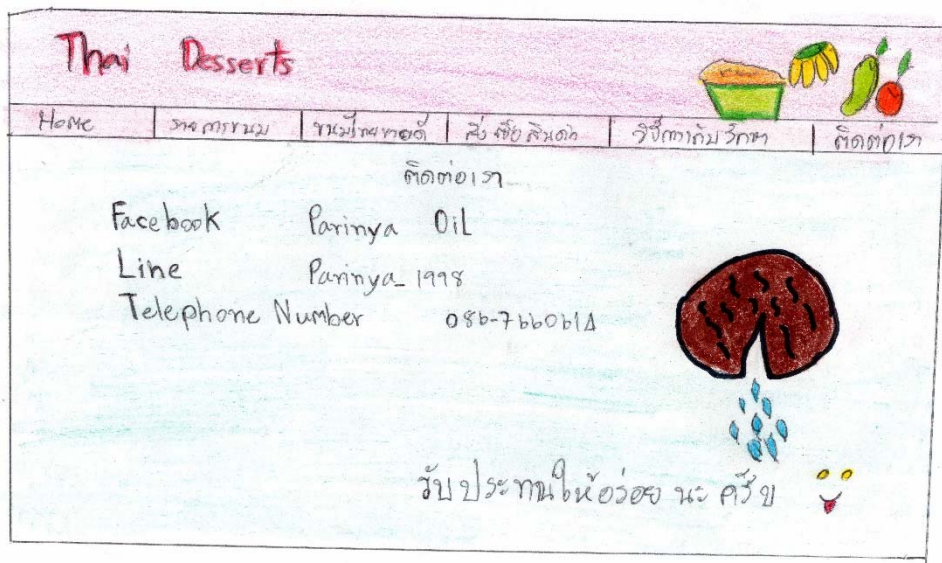 Thai Desserts
Home รายการขนม ขนมไทยขายดี สั่งซื้อสินค้า วิธีการเก็บรักษา ติดต่อเรา
ติดต่อเรา
Facebook Parinya OiL
Line Parinya_1998
Telephone Number 086-7660614
รับประทานให้อร่อย นะ ครับ